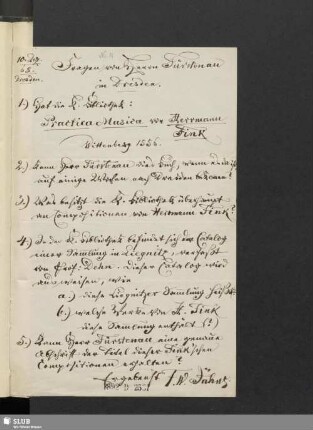 10. Sep.
68.
Dresden.
Fragen von Herrn Fürstenau
in Dresden.
1.) Hat die K. Bibliothek:
Practica Musica von Herrmann
Fink
Wittenberg 1556.
2.) Kann Herr Fürstenau dies Buch, wenn
auf einige Wochen nach Dresden bekommen?
3.) Was besitzt die K. Bibliothek überhaupt
an Compositionen von Hermann Fink?
4.) In der K. Bibliothek befindet sich der Catalog
einer Samlung in Liegnitz, verfasst
von Prof. Dehn. Dieser Catalog wird
nachweisen, wie
a.) diese Liegnitzer Samlung heißt
b.) welche Werke von H. Fink
diese Samlung enthält (?)
5.) Kann Herr Fürstenau eine genaue
Abschrift der Titel dieser Fink'schen
Compositionen erhalten?
Ergebenst F. W. Jähns
SLUB
Wir führen Wissen.